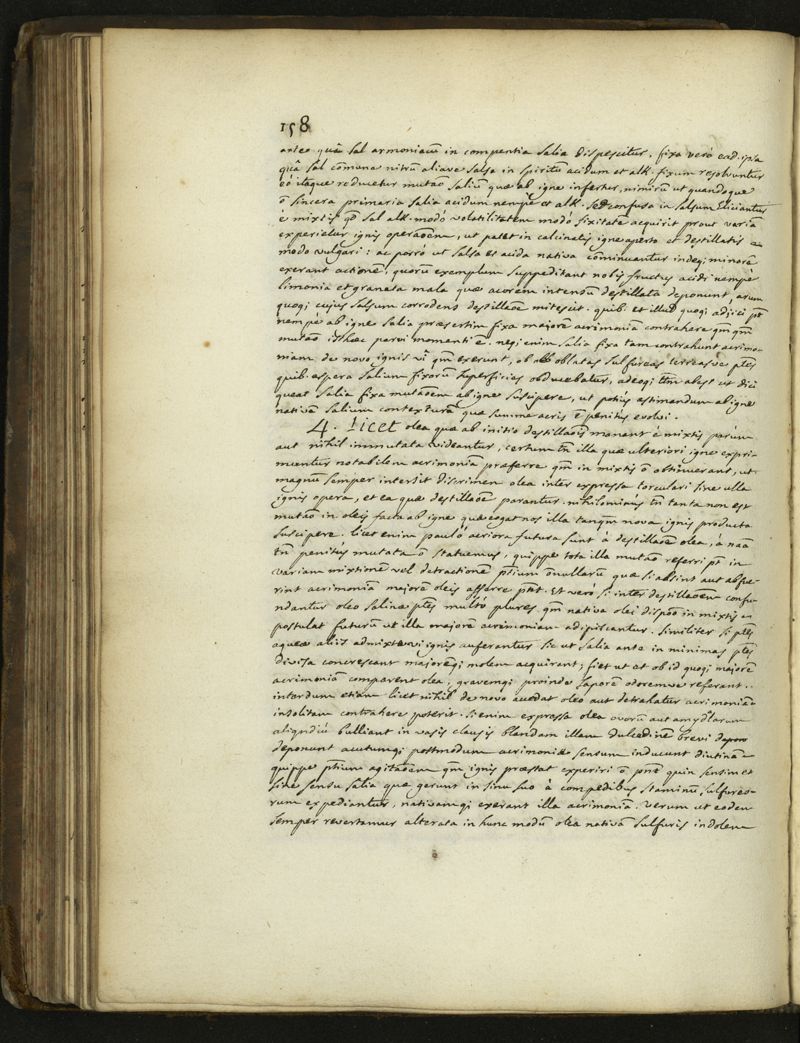 158
arte quâ sal armoniacū in compentia salia dispescitur. fixa verò ead. ipsa
quâ sal cōmune nitrū aliave salsa in spiritū acidum et alk. fixum resolvuntur
eó itaque reducetur mutaō saliū quæ ab igne infertur, nimirū ut quandoque
ō sincera primaria salia acidum nempè et alk. sed confusa in salsum eliciantur
è mixtis qd sal alk. modò volatilitatem modò fixitatē acquirit prout variā
experietur ignis operaōem, ut patet in calcinatis igne aperto et destillatis
modo vulgari: ac porró ut salsa et acida nativa cōminuantur indeq; minorē
exerant actionē, quorū exemplum suppeditant nobis fructus acidi nempè
limonia et granata mala quæ acorem intensū destillata deponunt,
quoq; cujus salsum corrodens destillaōe mitescit. quib. et illud quoq; adjici pt
nempè ab igne salia præsertim fixa majorē acrimoniā contrahere qm qm
mutaō isthæc parvi momenti ē. neq; enim salia fixa tam contrahunt acrimo-
niam de novo ignis vi qm exerunt, ob ablatas sulfureas terreasve ptes
quib. aspera salium fixorū superficies obducebatur, adeoq; tm abest ut dici
queat salia fixa mutaōem ab igne suscipere, ut potius æstimandum ab igne
nativā salium contexturā quæ summè acris ē penitus evolvi.
4. Licet olea quæ ab initio destillaōis manant è mixtis parùm
aut nihil immutata videantur, certum tn illa quæ ulteriori igne expri-
muntur notabilem acrimoniā præferre qm in mixtis ō obtinuerant, ut
magnū semper intersit discrimen olea inter expressa torculari sine ulla
ignis opera, et ea quæ destillaōe parantur. nihilominùs tn tanta non est
mutaō in oleis facta ab igne quæ cogat nos illa tanqm nova ignis producta
suscipere. licet enim pauló acriora futura sunt à destillaōe olea, à naā
tn penitùs mutata ō statuemus, quippe tota illa mutaō referri pt in
variam mixtionē vel detractionē ptium ōnullarū quæ si absint aut abfue-
rint acrimoniā majorē oleis afferre ptt. Et verò si inter destillaōem confu-
ndantur oleo salinæ ptes multò plures qm nativa olei dispōō in mixtis
postulat futurū ut illa majorē acrimoniam adipiscantur. similiter si ptes
aqueæ aliis admixtæ vi ignis auferantur sic ut salia ante in minimas ptes
divisa concrescant majorēq; molem acquirant; fiet ut et ob id quoq; majorē
acrimoniā comparent olea, gravemq; proinde saporē odoremve referant.
interdum etiam licet nihil de novo accedat oleo aut detrahatur acrimoniā
insolitam contrahere poterit. si enim expressa olea ovorū aut amygdlarum
aliqudiù bulliant in vasis clausis blandam illam dulcedinē brevi
deponunt acutumq; postmodum acrimoniæ sensum inducunt diutinā
quippe ptium agitaōem qm ignis præstat experiri ō pnt quin sensim et
sine sensu salia quæ gerunt in sinu suo à compedibus staminū sulfureo-
rum expediantur, nativamq; exerant illa acrimoniā. Verum ut eodem
semper revertamur alterata in hunc modū olea nativā sulfuris indolem